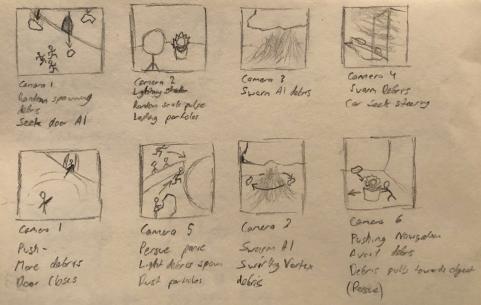 Camera 1
Random spawning
debris
Seek door AI
Camera 2
Random scale pulse
particles
Camera 3
Swarm AI debris
Camera 4
Swarm Debris
Car Seek steering
Camera 1
Push -
More debris
Door Closes
Camera 5
Persue panic
Light debris spawn
Dust particles
Camera 3
Swarm AI
Swirling Vortex
debris
Camera 6
Pushing Navigation
Avoid debris
Debris pulls towards object
(Persue)